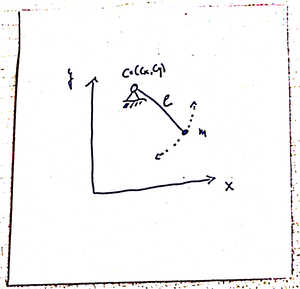 y
C=(Cx,Cy)
l
m
x